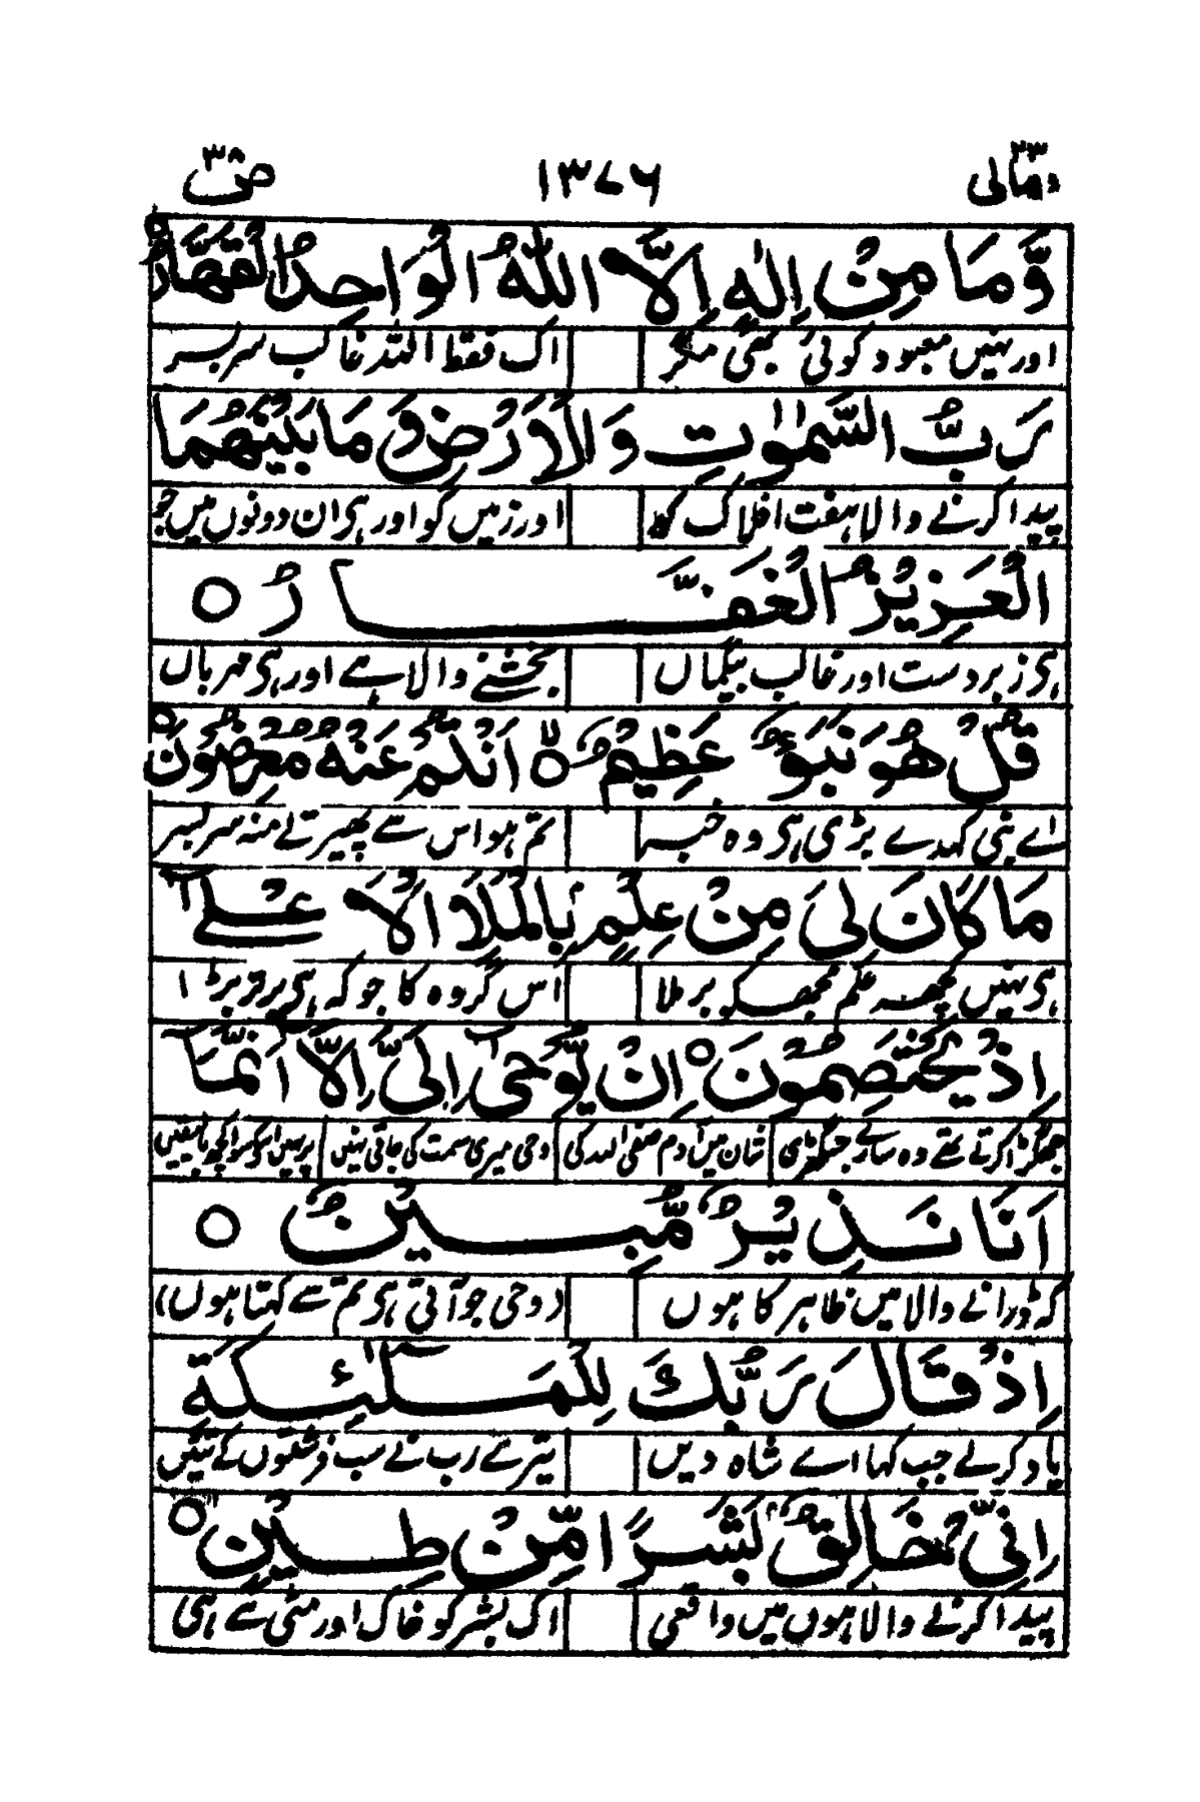 ومالی ۲۳ ۱۳۷۶ ص ۳۸
وَّمَا مِنْ اِلٰهٍ اِلَّا اللّٰهُ الْوَاحِدُ الْقَهَّارُ
اور نہیں معبود کوئی بھی مگر اک فقط اللہ غالب سر بسر
رَبُّ السَّمٰوٰتِ وَالْاَرْضِ وَمَا بَيْنَهُمَا
پیدا کرنے والا ہفت افلاک کا اور زمیں کو اور ہی ان دونوں میں جو
الْعَزِيْزُ الْغَفَّارُ ○
ہی زبردست اور غالب بیگماں بخشنے والا ہے اور ہی مہرباں
قُلْ هُوَ نَبَؤٌا عَظِيْمٌ ○ اَنْتُمْ عَنْهُ مُعْرِضُوْنَ ○
اے نبی کہدے بڑی ہی وہ خبر تم ہو اس سے پھیرتے منہ سر بسر
مَا كَانَ لِيَ مِنْ عِلْمٍ بِالْمَلَاِ الْاَعْلٰٓى
ہی نہیں کچھ علم مجھ کو برملا اس گروہ کا جو کہ ہی برتر بڑا
اِذْ يَخْتَصِمُوْنَ ○ اِنْ يُّوْحٰٓى اِلَيَّ اِلَّآ اَنَّمَآ
جھگڑا کرتے تھے وہ سارے جس گھڑی شان میں آدم صفی اللہ کی وحی میری سمت کی جاتی نہیں
اَنَا نَذِيْرٌ مُّبِيْنٌ ○
کہ ڈرانے والا میں ظاہر کا ہوں (وحی جو آتی ہی تم سے کہتا ہوں)
اِذْ قَالَ رَبُّكَ لِلْمَلٰٓئِكَةِ
یاد کر لے جب کہا اے شاہ دیں تیرے رب نے سب فرشتوں کے تئیں
اِنِّيْ خَالِقٌۢ بَشَرًا مِّنْ طِيْنٍ ○
پیدا کرنے والا ہوں میں واقعی اک بشر کو خاک اور مٹی سے ہی